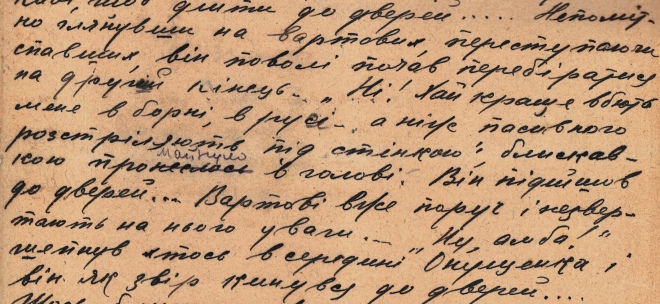 щоб дійти до дверей..... Непоміт-
но глянувши на вартових, переступаючи
спавших, він поволі почав перебіратися
на другий кінець... „Ні! Хай краще вбють
мене в борні, в русі – а ніж пасивного
розстріляють під стінкою", блискав-
майнуло
кою пронеслось в голові. Він підійшов
до дверей... Вартові вже поруч і незвер-
тають на нього уваги... – „Ну, амба!"
шепнув хтось в середині Онущенка і
він як звір кинувся до дверей....